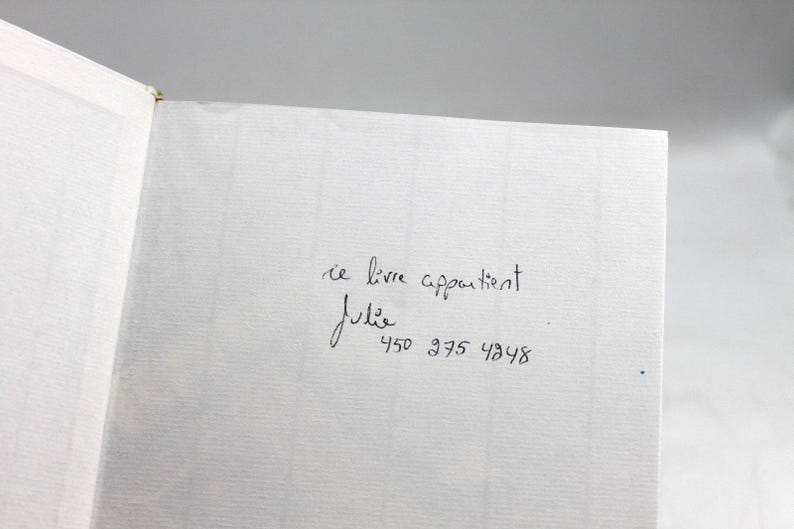 ce livre appartient
Julie
450 275 4248